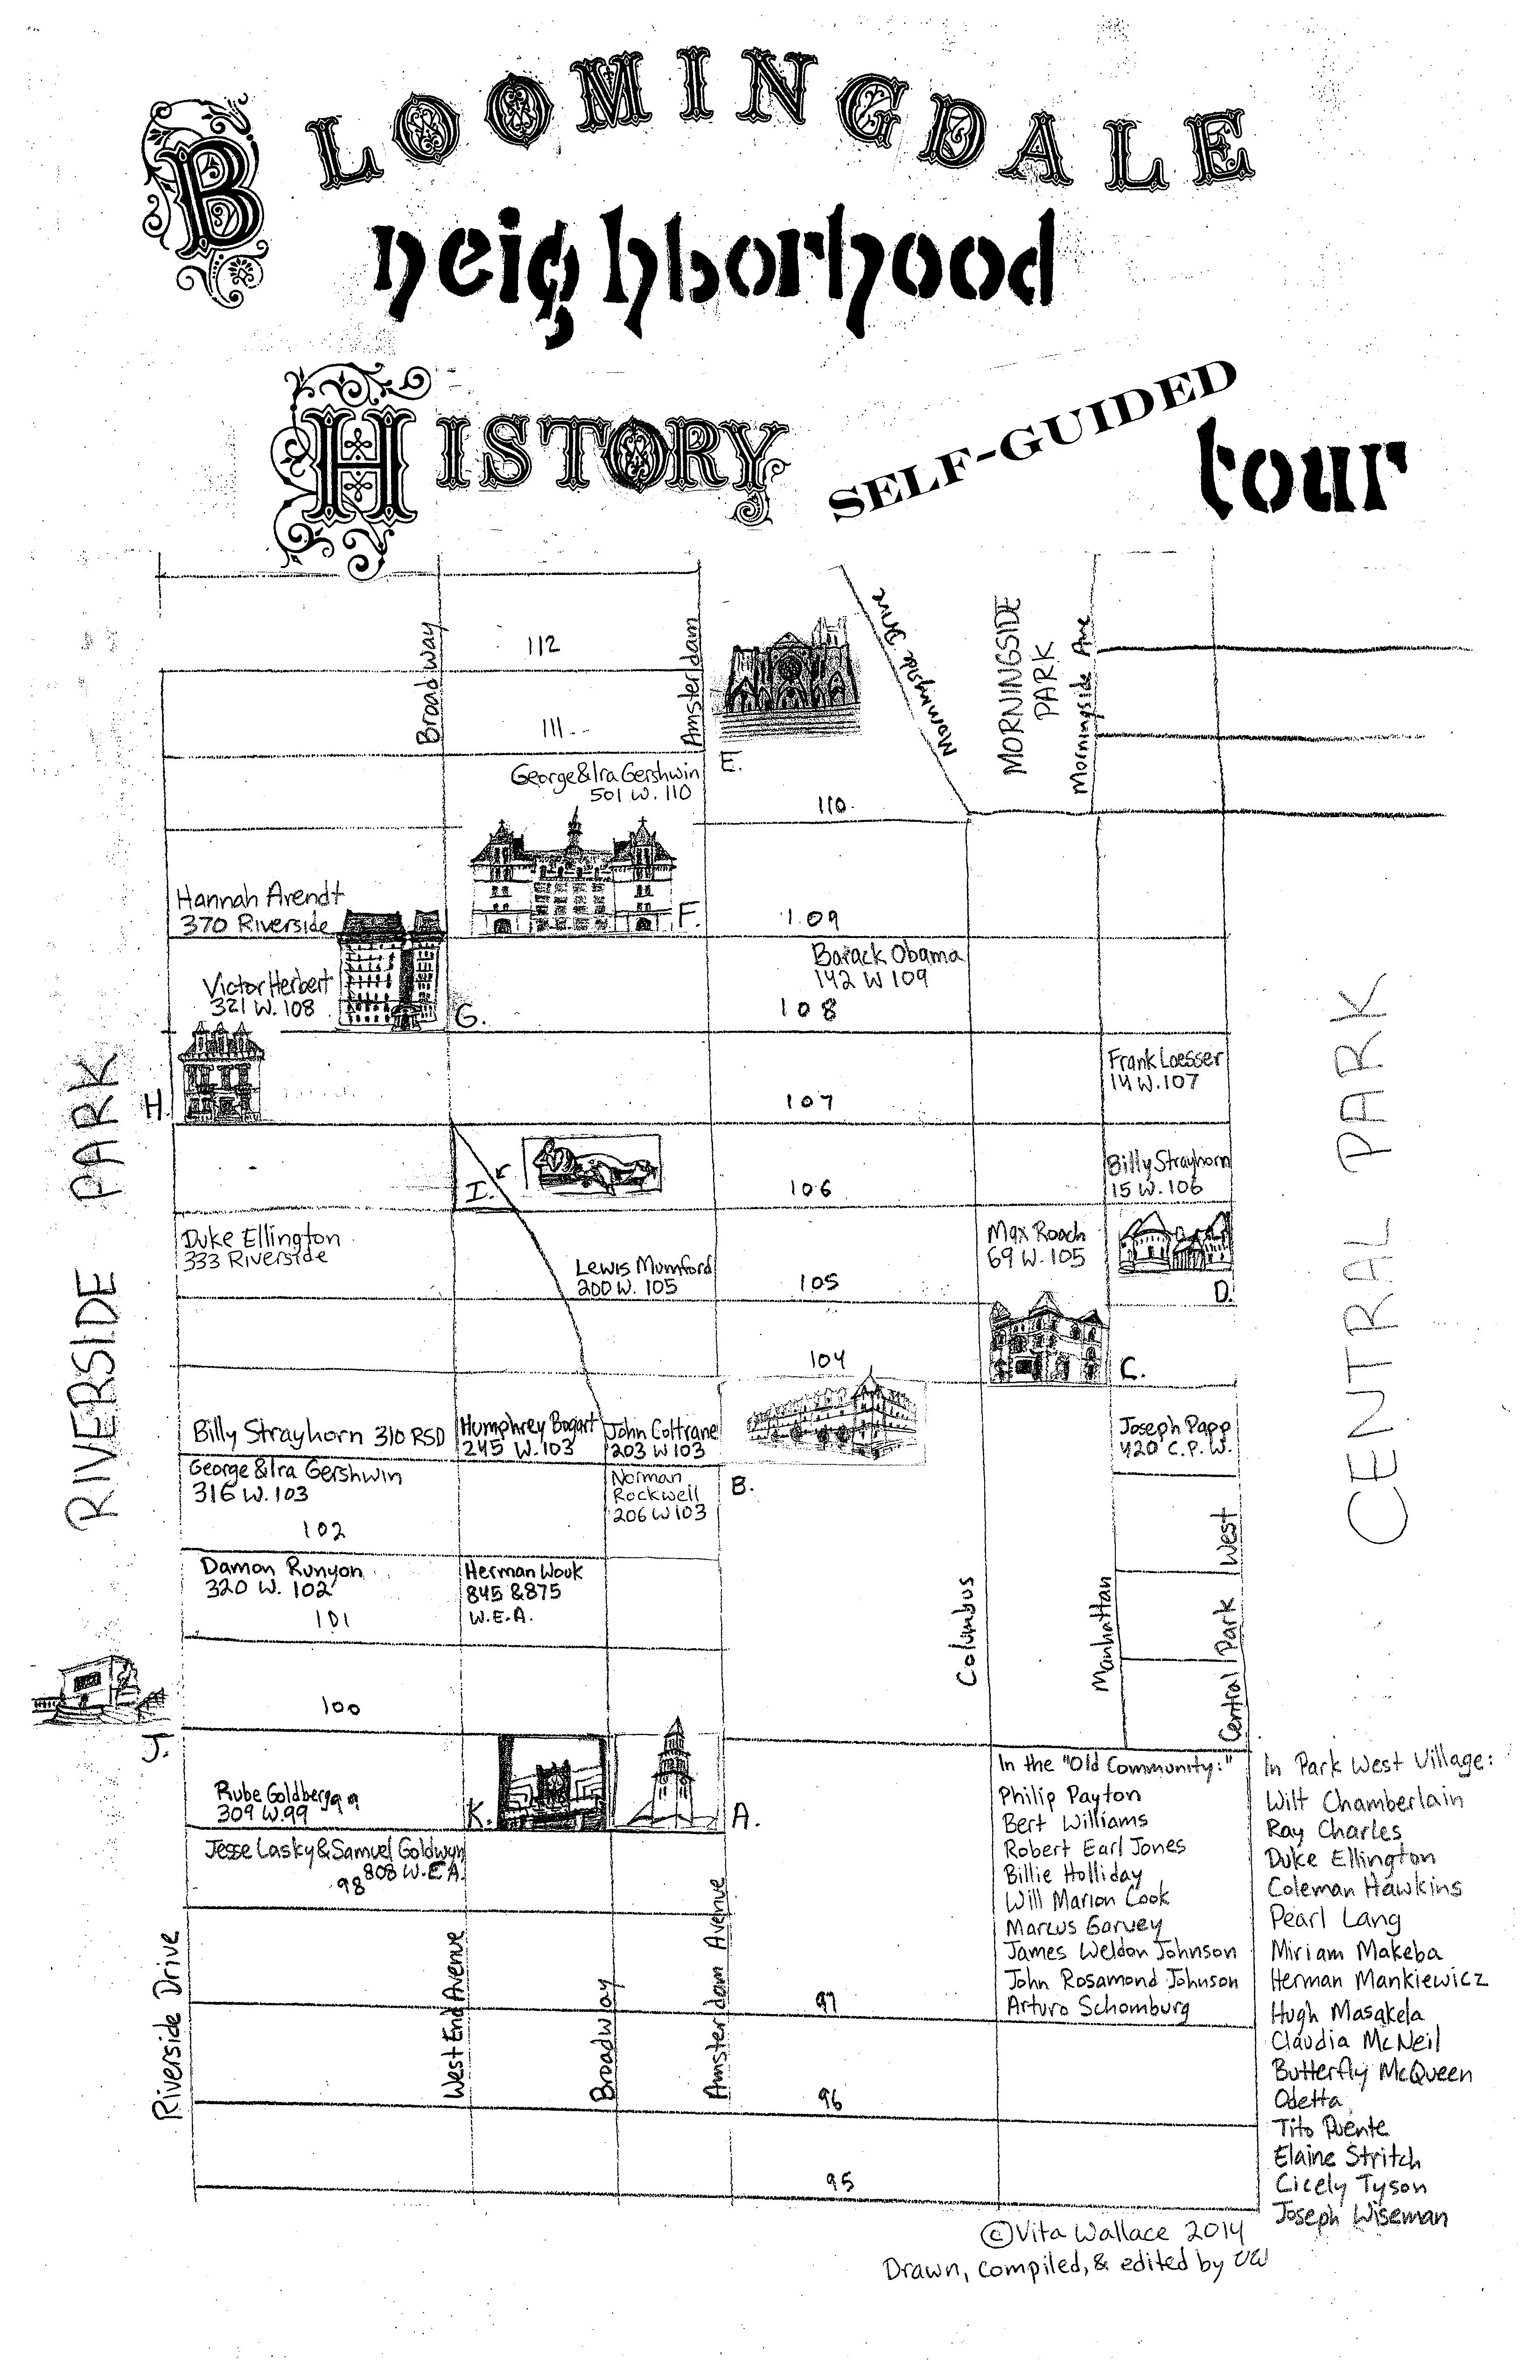 BLOOMINGDALE
neighborhood
HISTORY SELF-GUIDED tour
Broadway
112
Amsterdam
Morningside Drive
MORNINGSIDE
PARK
Morningside Ave
111
George & Ira Gershwin
501 W. 110
E.
110
Hannah Arendt
370 Riverside
F.
109
Victor Herbert
321 W. 108
G.
Barack Obama
142 W 109
108
H.
107
Frank Loesser
14 W. 107
I.
106
Billy Strayhorn
15 W. 106
RIVERSIDE PARK
CENTRAL PARK
Duke Ellington
333 Riverside
Lewis Mumford
200 W. 105
105
Max Roach
69 W. 105
D.
104
C.
Billy Strayhorn 310 RSD
Humphrey Bogart
245 W. 103
John Coltrane
203 W 103
Joseph Papp
420 C.P.W.
George & Ira Gershwin
316 W. 103
Norman
Rockwell
206 W 103
B.
102
Damon Runyon
320 W. 102
Herman Wouk
845 & 875
W.E.A.
101
Columbus
Manhattan
Central Park West
100
J.
Rube Goldberg 99
309 W. 99
K.
A.
Jesse Lasky & Samuel Goldwyn
808 W.E.A.
98
Riverside Drive
West End Avenue
Broadway
Amsterdam Avenue
97
96
95
In the "Old Community:"
Philip Payton
Bert Williams
Robert Earl Jones
Billie Holliday
Will Marion Cook
Marcus Garvey
James Weldon Johnson
John Rosamond Johnson
Arturo Schomburg
In Park West Village:
Wilt Chamberlain
Ray Charles
Duke Ellington
Coleman Hawkins
Pearl Lang
Miriam Makeba
Herman Mankiewicz
Hugh Masakela
Claudia McNeil
Butterfly McQueen
Odetta
Tito Puente
Elaine Stritch
Cicely Tyson
Joseph Wiseman
©Vita Wallace 2014
Drawn, compiled, & edited by VW